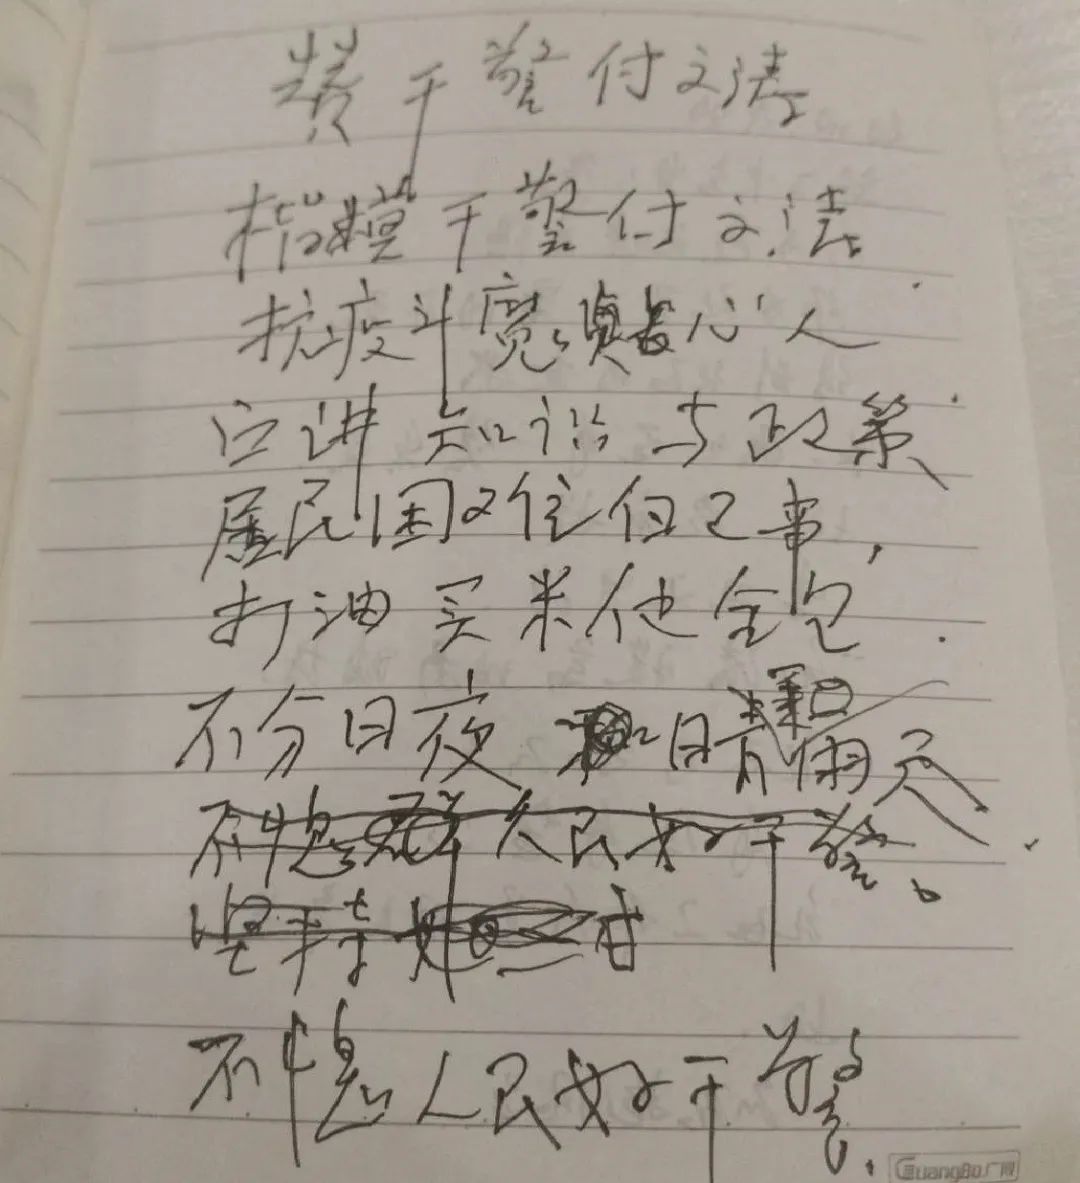 赞干警付文涛
楷模干警付文涛
抗疫斗魔贴心人
宣讲知识与政策
居民困难但己事,
打油买米他全包.
不分日夜 日晴雨天
不愧 人民好干警。
坚持
不愧人民好干警.
GuangBo广博